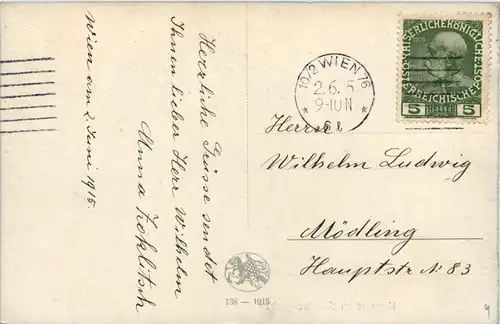 Wien am 2. Juni 1915.
Herrliche Grüsse sendet
Ihnen lieber Herr Wilhelm
Anna
138 — 1915
10/2 WIEN 76
2.6.5
9-10N
* 6e *
KAISERLICHE KÖNIGLICHE
ÖSTERREICHISCHE
5 HELLER 5
Herrn
Wilhelm Ludwig
Mödling
Hauptstr N. 83